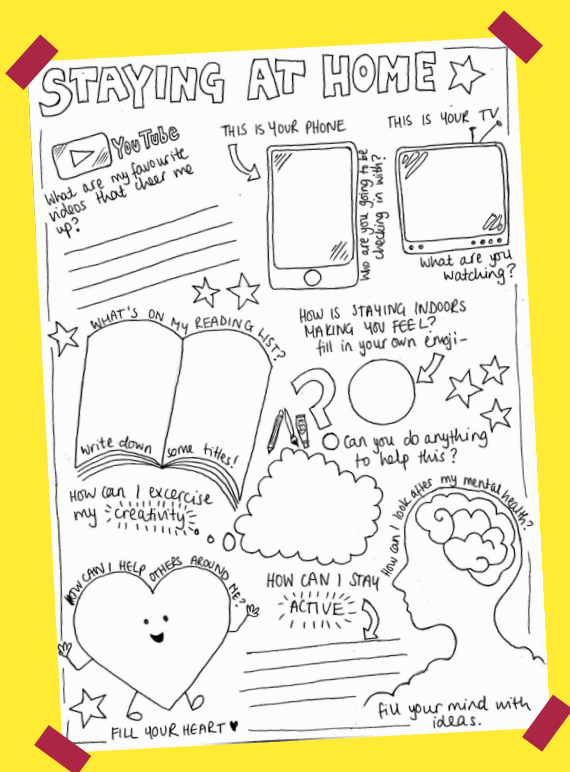 STAYING AT HOME
YouTube
What are my favourite
videos that cheer me
up?
THIS IS YOUR PHONE
Who are you going to be
checking in with?
THIS IS YOUR TV
What are you
watching?
WHAT'S ON MY READING LIST?
write down some titles!
HOW IS STAYING INDOORS
MAKING YOU FEEL?
fill in your own emoji-
Can you do anything
to help this?
HOW can I excercise
my creativity
How can I look after my mental health?
HOW CAN I HELP OTHERS AROUND ME?
HOW CAN I STAY
ACTIVE
FILL YOUR HEART
fill your mind with
ideas.